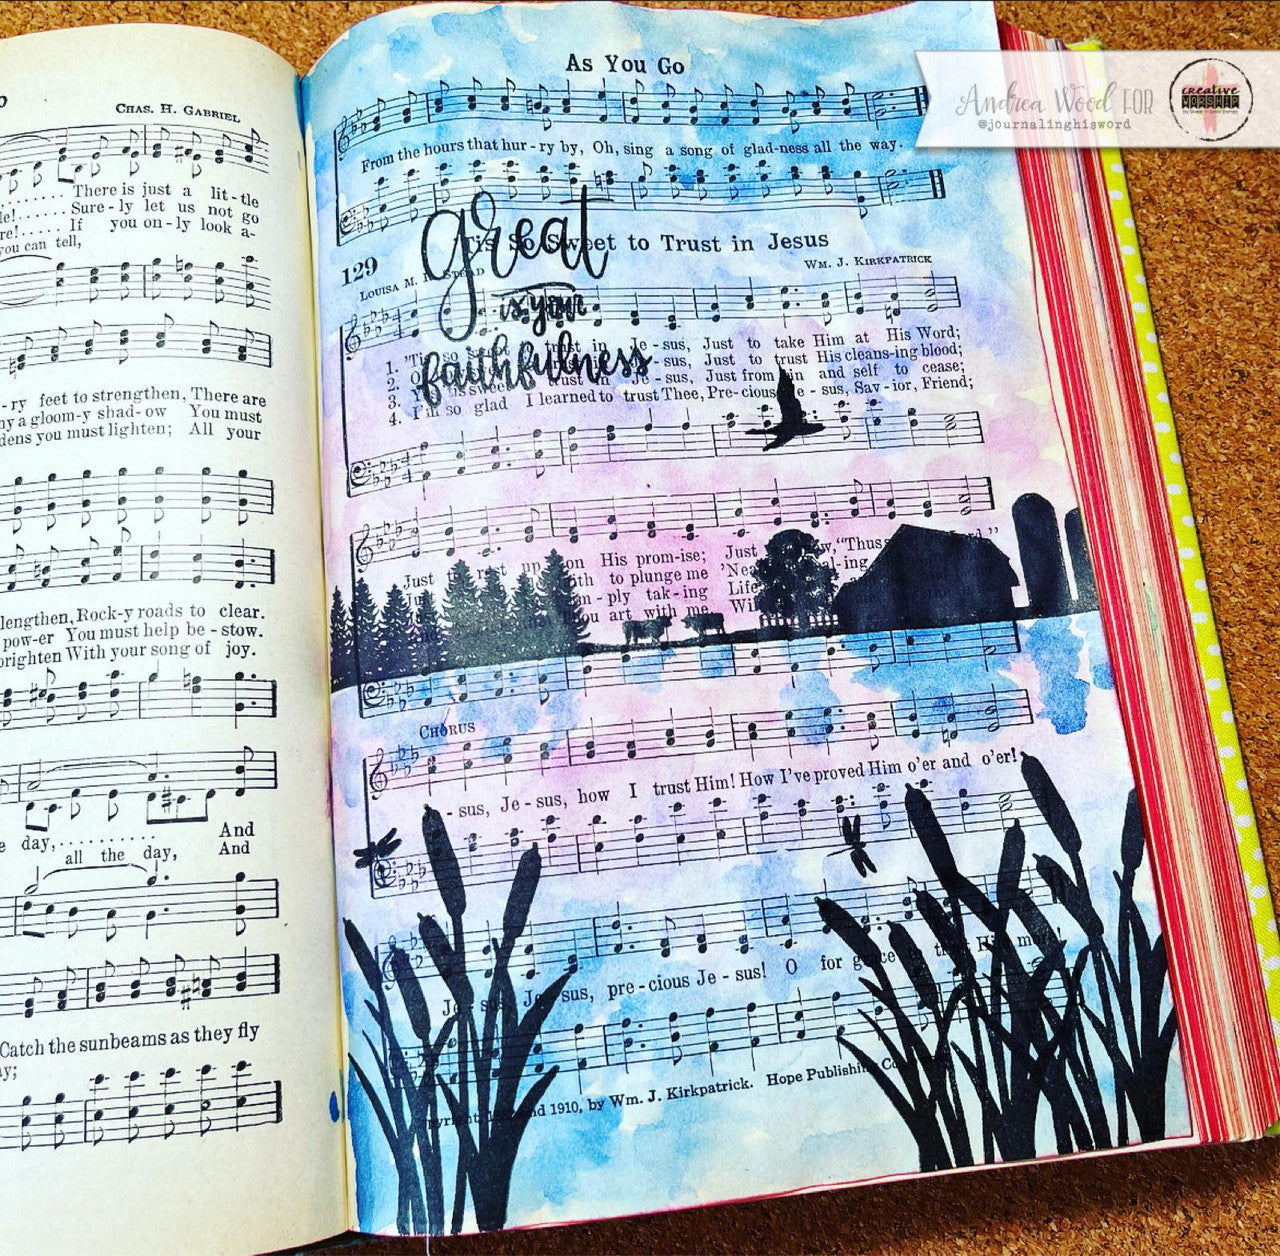 CHAS. H. GABRIEL
There is just a lit-tle
le!...... Sure-ly let us not go
re!...... If you on-ly look a-
you can tell,
-ry feet to strengthen, There are
ny a gloom-y shad-ow You must
dens you must lighten; All your
lengthen, Rock-y roads to clear.
pow-er You must help be-stow.
brighten With your song of joy.
e day,.......... And
all the day, And
Catch the sunbeams as they fly
ay;
As You Go
From the hours that hur-ry by, Oh, sing a song of glad-ness all the way.
great
is your
faithfulness
129 'Tis So Sweet to Trust in Jesus
LOUISA M. WM. J. KIRKPATRICK
1. 'Tis so trust in Je-sus, Just to take Him at His Word;
2. O -sus, Just to trust His cleans-ing blood;
3. trust in Je-sus, Just from sin and self to cease;
4. I'm so glad I learned to trust Thee, Pre-cious Je-sus, Sav-ior, Friend;
Just up on His prom-ise; Just "Thus
to plunge me 'Nea al-ing
-ply tak-ing Life
Thou art with me, Wil
CHORUS
-sus, Je-sus, how I trust Him! How I've proved Him o'er and o'er!
Je-sus, Je-sus, pre-cious Je-sus! O for grace to trust Him more!
1910, by Wm. J. Kirkpatrick. Hope Publishing Co
Andrea Wood FOR
@journalinghisword
creative
WORSHIP